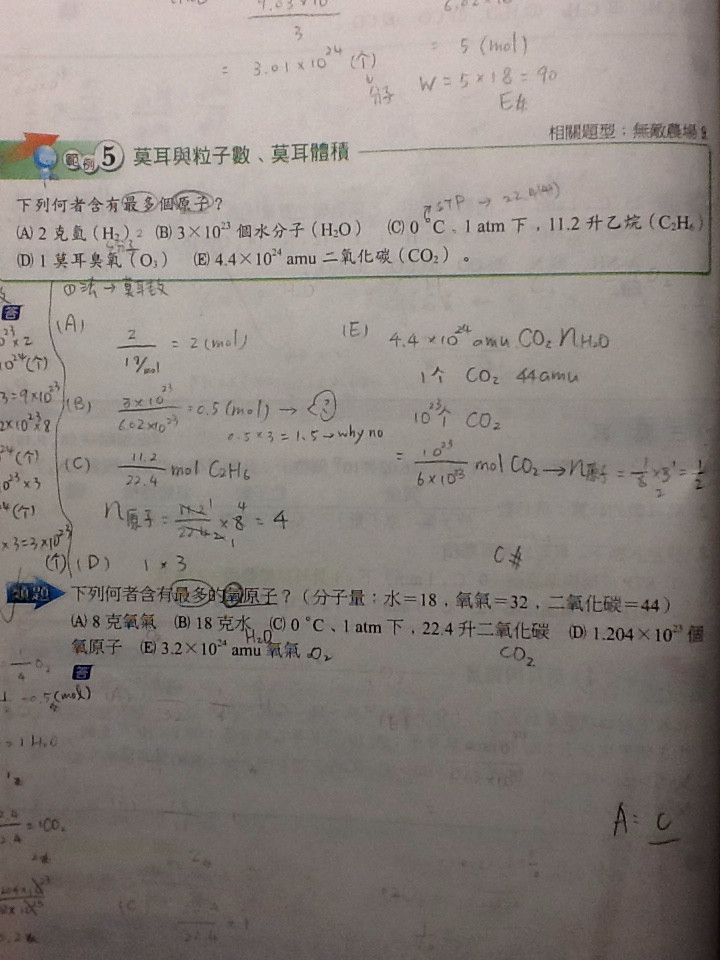 = 3.01×10²⁴ (个)
分子
= 5 (mol)
W = 5×18 = 90
E#
相關題型：無敵農場
範例 5 莫耳與粒子數、莫耳體積
STP → 22.4
下列何者含有最多個原子？
(A) 2 克氫（H₂） (B) 3×10²³ 個水分子（H₂O） (C) 0 °C、1 atm 下，11.2 升乙烷（C₂H₆）
(D) 1 莫耳臭氧（O₃） (E) 4.4×10²⁴ amu 二氧化碳（CO₂）。
法→莫耳數
(A)
2 / 1 g/mol = 2 (mol)
(B) 3×10²³ / 6.02×10²³ = 0.5 (mol) →
0.5×3 = 1.5 → why no
(C) 11.2 / 22.4 mol C₂H₆
n原子 = 11.2 / 22.4 × 8 = 4
(D) 1×3
(E) 4.4×10²⁴ amu CO₂ nH₂O
1个 CO₂ 44amu
10²³个 CO₂
= 10²³ / 6×10²³ mol CO₂ → n原子 = 1/6 ×3 = 1/2
C#
下列何者含有最多的氧原子？（分子量：水＝18，氧氣＝32，二氧化碳＝44）
(A) 8 克氧氣 (B) 18 克水 (C) 0 °C、1 atm 下，22.4 升二氧化碳 (D) 1.204×10²³ 個
H₂O
氧原子 (E) 3.2×10²⁴ amu 氧氣 O₂
CO₂
答
A: C